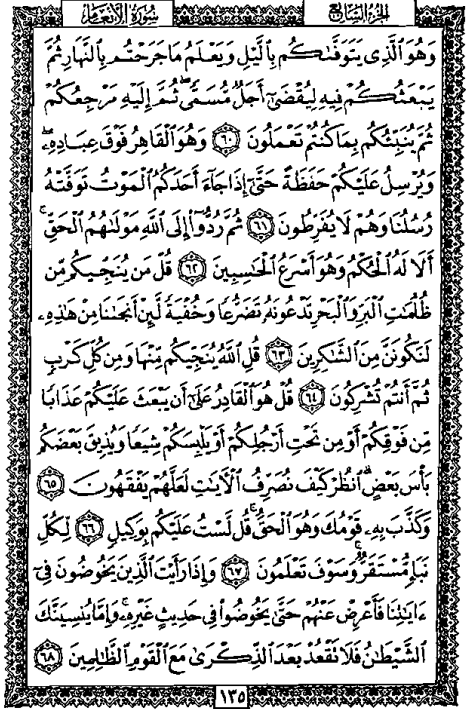 سُورَةُ الأَنْعَام
الجُزْءُ السَّابِعُ
وَهُوَ ٱلَّذِى يَتَوَفَّىٰكُم بِٱلَّيْلِ وَيَعْلَمُ مَا جَرَحْتُم بِٱلنَّهَارِ ثُمَّ
يَبْعَثُكُمْ فِيهِ لِيُقْضَىٰٓ أَجَلٌ مُّسَمًّى ۖ ثُمَّ إِلَيْهِ مَرْجِعُكُمْ
ثُمَّ يُنَبِّئُكُم بِمَا كُنتُمْ تَعْمَلُونَ ۝٦٠ وَهُوَ ٱلْقَاهِرُ فَوْقَ عِبَادِهِۦ ۖ
وَيُرْسِلُ عَلَيْكُمْ حَفَظَةً حَتَّىٰٓ إِذَا جَآءَ أَحَدَكُمُ ٱلْمَوْتُ تَوَفَّتْهُ
رُسُلُنَا وَهُمْ لَا يُفَرِّطُونَ ۝٦١ ثُمَّ رُدُّوٓا۟ إِلَى ٱللَّهِ مَوْلَىٰهُمُ ٱلْحَقِّ ۚ
أَلَا لَهُ ٱلْحُكْمُ وَهُوَ أَسْرَعُ ٱلْحَٰسِبِينَ ۝٦٢ قُلْ مَن يُنَجِّيكُم مِّن
ظُلُمَٰتِ ٱلْبَرِّ وَٱلْبَحْرِ تَدْعُونَهُۥ تَضَرُّعًا وَخُفْيَةً لَّئِنْ أَنجَىٰنَا مِنْ هَٰذِهِۦ
لَنَكُونَنَّ مِنَ ٱلشَّٰكِرِينَ ۝٦٣ قُلِ ٱللَّهُ يُنَجِّيكُم مِّنْهَا وَمِن كُلِّ كَرْبٍ
ثُمَّ أَنتُمْ تُشْرِكُونَ ۝٦٤ قُلْ هُوَ ٱلْقَادِرُ عَلَىٰٓ أَن يَبْعَثَ عَلَيْكُمْ عَذَابًا
مِّن فَوْقِكُمْ أَوْ مِن تَحْتِ أَرْجُلِكُمْ أَوْ يَلْبِسَكُمْ شِيَعًا وَيُذِيقَ بَعْضَكُم
بَأْسَ بَعْضٍ ۗ ٱنظُرْ كَيْفَ نُصَرِّفُ ٱلْءَايَٰتِ لَعَلَّهُمْ يَفْقَهُونَ ۝٦٥
وَكَذَّبَ بِهِۦ قَوْمُكَ وَهُوَ ٱلْحَقُّ ۚ قُل لَّسْتُ عَلَيْكُم بِوَكِيلٍ ۝٦٦ لِّكُلِّ
نَبَإٍ مُّسْتَقَرٌّ ۚ وَسَوْفَ تَعْلَمُونَ ۝٦٧ وَإِذَا رَأَيْتَ ٱلَّذِينَ يَخُوضُونَ فِىٓ
ءَايَٰتِنَا فَأَعْرِضْ عَنْهُمْ حَتَّىٰ يَخُوضُوا۟ فِى حَدِيثٍ غَيْرِهِۦ ۚ وَإِمَّا يُنسِيَنَّكَ
ٱلشَّيْطَٰنُ فَلَا تَقْعُدْ بَعْدَ ٱلذِّكْرَىٰ مَعَ ٱلْقَوْمِ ٱلظَّٰلِمِينَ ۝٦٨
١٣٥